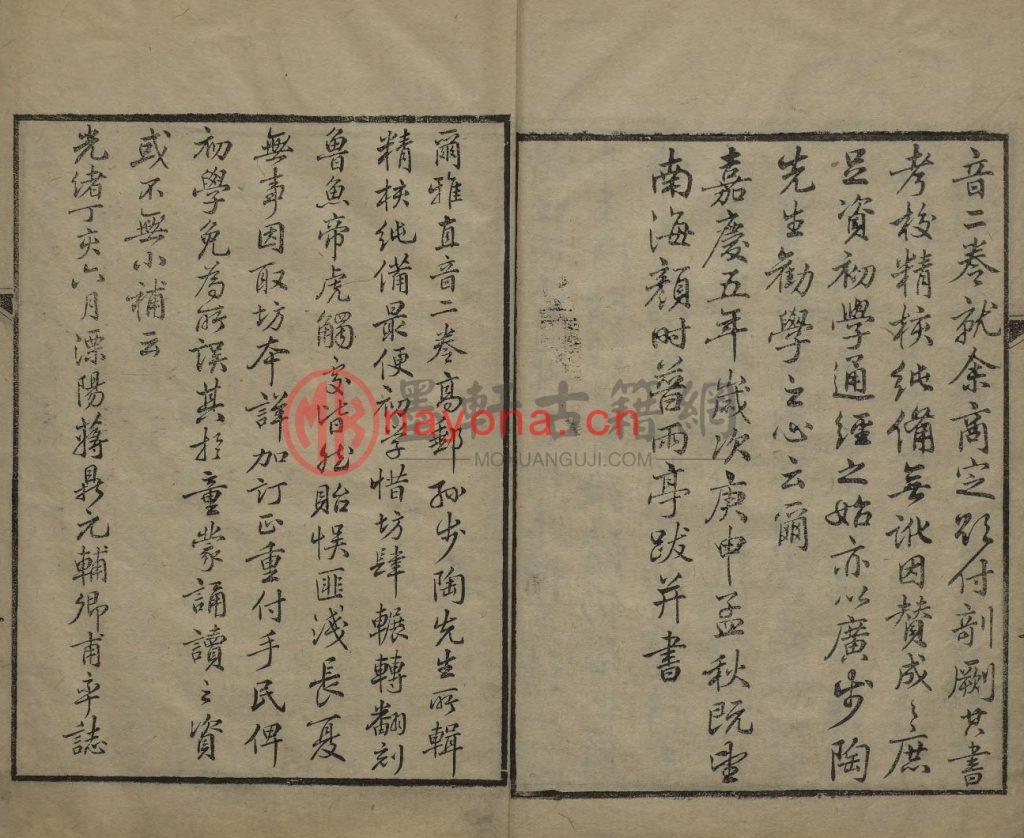 音二卷就余商定欲付剞劂其書
考校精核純備無訛因贊成之庶
足資初學通經之始亦以廣步陶
先生勸學之心云爾
嘉慶五年歲次庚申孟秋既望
南海顏時普雨亭跋并書
爾雅直音二卷高郵孫步陶先生所輯
精核純備最便初學惜坊肆輾轉翻刻
魯魚帝虎觸處皆然貽悞匪淺長夏
無事因取坊本詳加訂正重付手民俾
初學免為所誤其於童蒙誦讀之資
或不無小補云
光緒丁亥六月溧陽蔣鼎元輔卿甫率誌
墨軒古籍網
nayona.cn
MOXUANGUJI.COM